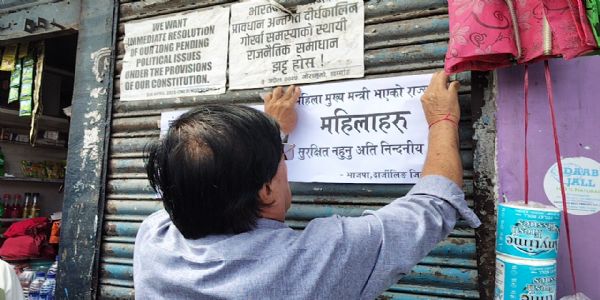 WE WANT
IMMEDIATE RESOLUTION
OF OUR LONG PENDING
POLITICAL ISSUES
UNDER THE PROVISIONS
OF OUR CONSTITUTION.
प्रावधान अन्तर्गत दीर्घकालिन
गोर्खा समस्याको स्थायी
राजनैतिक समाधान
झट्टै होस !
महिला मुख्य मन्त्री भएको
महिलाहरु
सुरक्षित नहुनु अति निन्दनीय
- भाजपा, दार्जीलिङ
DAAB
JALL
Anytime